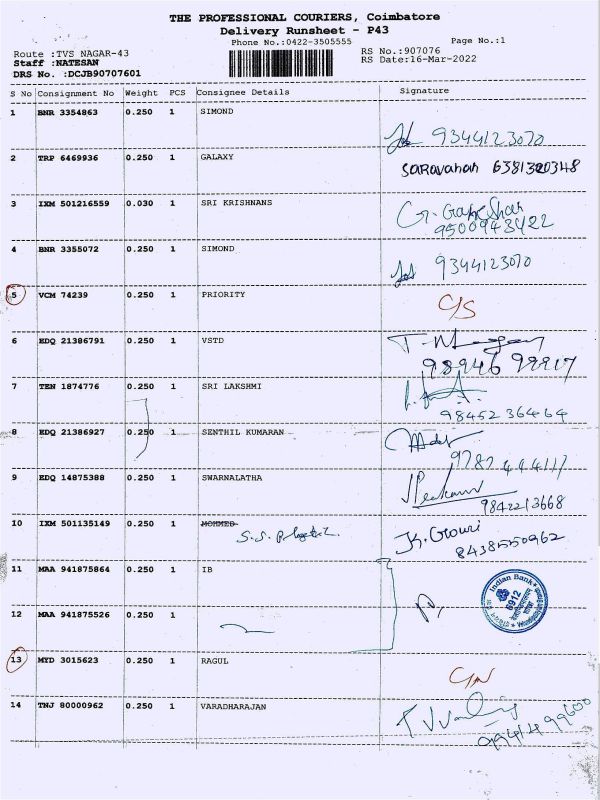 THE PROFESSIONAL COURIERS, Coimbatore
Delivery Runsheet - P43
Phone No.:0422-3505555 Page No.:1
Route :TVS NAGAR-43 RS No.:907076
Staff :NATESAN RS Date:16-Mar-2022
DRS No. :DCJB90707601
S No Consignment No Weight PCS Consignee Details Signature
1 BNR 3354863 0.250 1 SIMOND
9344123070
2 TRP 6469936 0.250 1 GALAXY
Saravanan 6381320348
3 IXM 501216559 0.030 1 SRI KRISHNANS
9500943422
4 BNR 3355072 0.250 1 SIMOND
9344123070
5 VCM 74239 0.250 1 PRIORITY
C/S
6 EDQ 21386791 0.250 1 VSTD
7 TEN 1874776 0.250 1 SRI LAKSHMI
98452 36464
8 EDQ 21386927 0.250 1 SENTHIL KUMARAN
9787 444117
9 EDQ 14875388 0.250 1 SWARNALATHA
9842213668
10 IXM 501135149 0.250 1 MOHMED
K. Gowri
8438550962
11 MAA 941875864 0.250 1 IB
Indian Bank
6912
12 MAA 941875526 0.250 1
13 MYD 3015623 0.250 1 RAGUL
C/N
14 TNJ 80000962 0.250 1 VARADHARAJAN